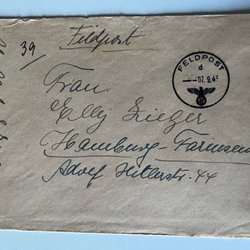 39
Feldpost
FELDPOST
d
-- 07. 9. 4
Frau
Elly Zieger
Hamburg-Farmsen
Adolf Hitlerstr. 44